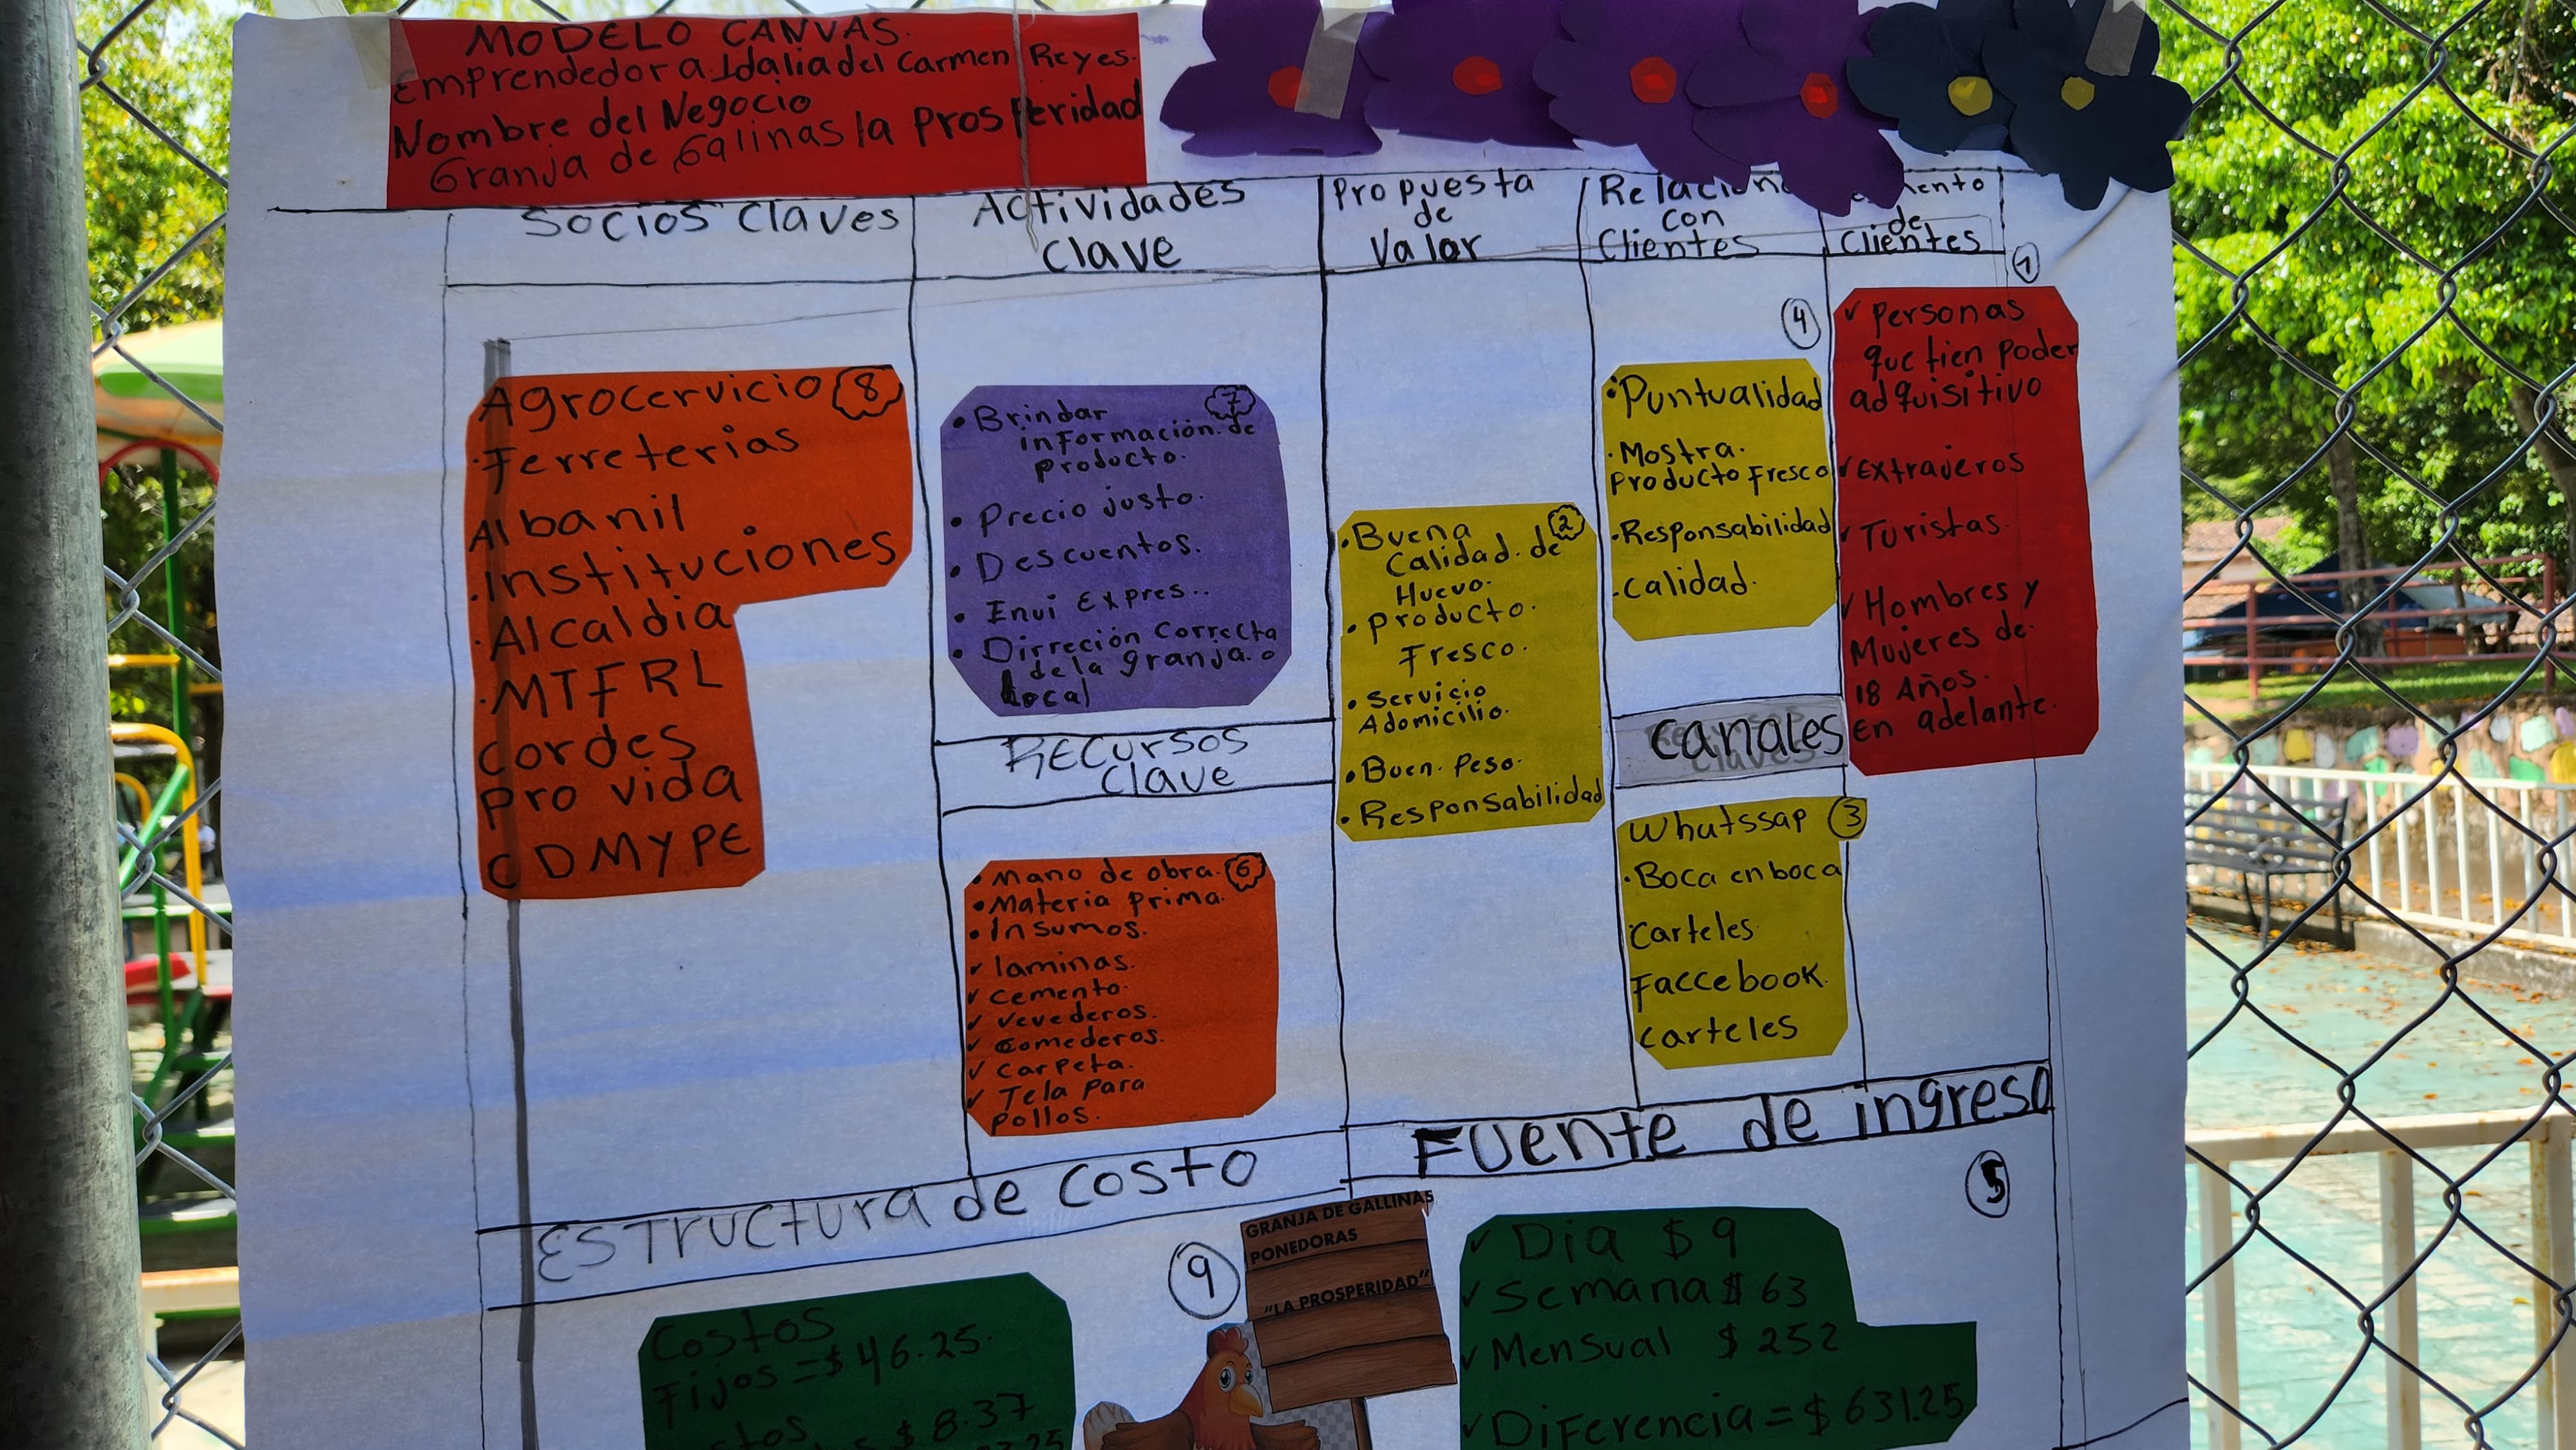 MODELO CANVAS.
Emprendedora Idalia del Carmen Reyes.
Nombre del Negocio
Granja de Galinas la Prosperidad
Socios Claves
Actividades
Clave
Propuesta
de
Valor
con
Clientes
de
Clientes
1
Agrocervicio 8
·Ferreterias
Albanil
.Instituciones
·Alcaldia
·MTFRL
Cordes
Pro vida
CDMYPE
• Brindar 7
información.de
producto.
• Precio justo.
• Descuentos.
• Envi Expres..
• Dirreción Correcta
dela granja. o
Local
Recursos
Clave
• Mano de obra. 6
• Materia prima.
• Insumos.
✓ laminas.
✓ cemento.
✓ vevederos.
✓ comederos.
✓ carpeta.
✓ Tela para
pollos.
• Buena 2
Calidad. de
Huevo.
• producto.
Fresco.
• servicio
Adomicilio.
• Buen. peso.
• Responsabilidad
4
·Puntualidad
·Mostra.
Producto Fresco
·Responsabilidad
.calidad.
canales
Whatssap 3
·Boca en boca
Carteles
Faccebook.
carteles
✓ personas
que tien poder
adquisitivo
✓ Extrajeros
✓ Turistas.
✓ Hombres y
Mujeres de.
18 Años.
En adelante.
Estructura de Costo
9
Costos
Fijos = $ 46.25.
$ 8.37
GRANJA DE GALLINAS
PONEDORAS
"LA PROSPERIDAD"
Fuente de ingreso
5
✓ Dia $ 9
✓ Semana $ 63
✓ Mensual $ 252
✓ Diferencia = $ 631.25